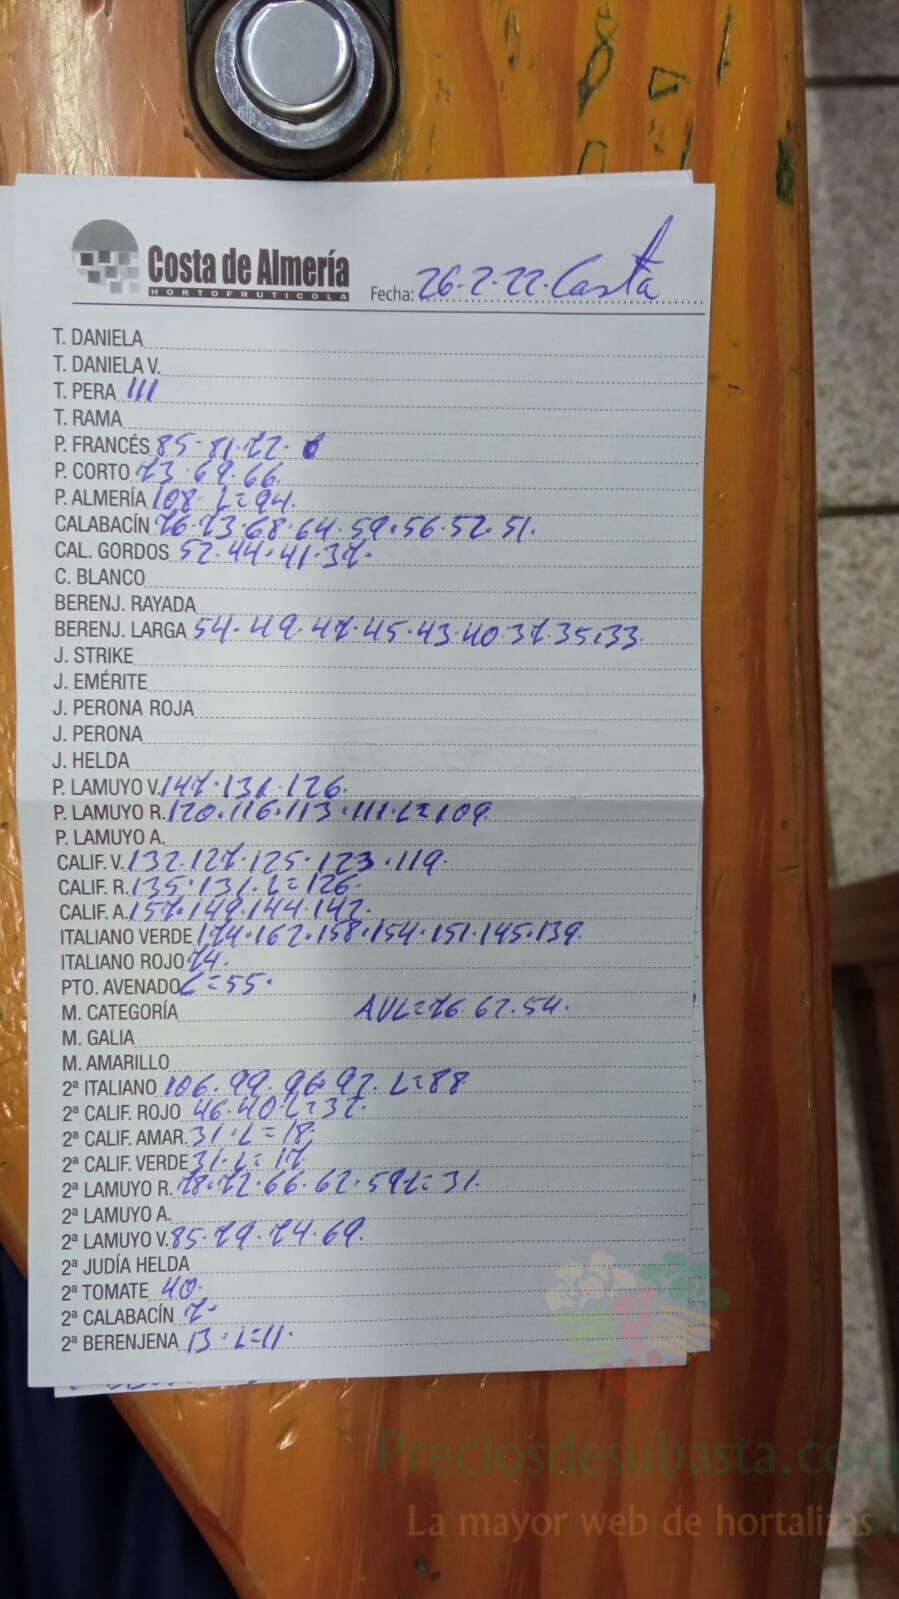 Costa de Almería
HORTOFRUTICOLA
Fecha: 26-2-22. Costa
T. DANIELA
T. DANIELA V.
T. PERA 111
T. RAMA
P. FRANCÉS 85-81.72.
P. CORTO 73.69.66.
P. ALMERÍA 108. L=94.
CALABACÍN 76.73.68.64.59.56.52.51.
CAL. GORDOS 52.44.41.37.
C. BLANCO
BERENJ. RAYADA
BERENJ. LARGA 54.49.47.45.43.40.37.35.33.
J. STRIKE
J. EMÉRITE
J. PERONA ROJA
J. PERONA
J. HELDA
P. LAMUYO V. 147.131.126.
P. LAMUYO R. 120.116.113.111.L=109
P. LAMUYO A.
CALIF. V. 132.127.125.123.119.
CALIF. R. 135.131.L=126.
CALIF. A. 157.149.144.142.
ITALIANO VERDE 174.162.158.154.151.145.139.
ITALIANO ROJO 74.
PTO. AVENADO L=55.
M. CATEGORÍA AVL=76.62.54.
M. GALIA
M. AMARILLO
2ª ITALIANO 106.99.96.92. L=88
2ª CALIF. ROJO 46.40.L=37.
2ª CALIF. AMAR. 31.L=18.
2ª CALIF. VERDE 31.L=17.
2ª LAMUYO R. 78.72.66.62.59L=31.
2ª LAMUYO A.
2ª LAMUYO V. 85.79.74.69.
2ª JUDÍA HELDA
2ª TOMATE 40.
2ª CALABACÍN 7-
2ª BERENJENA 13.L=11.
Preciosdesubasta.com
La mayor web de hortalizas